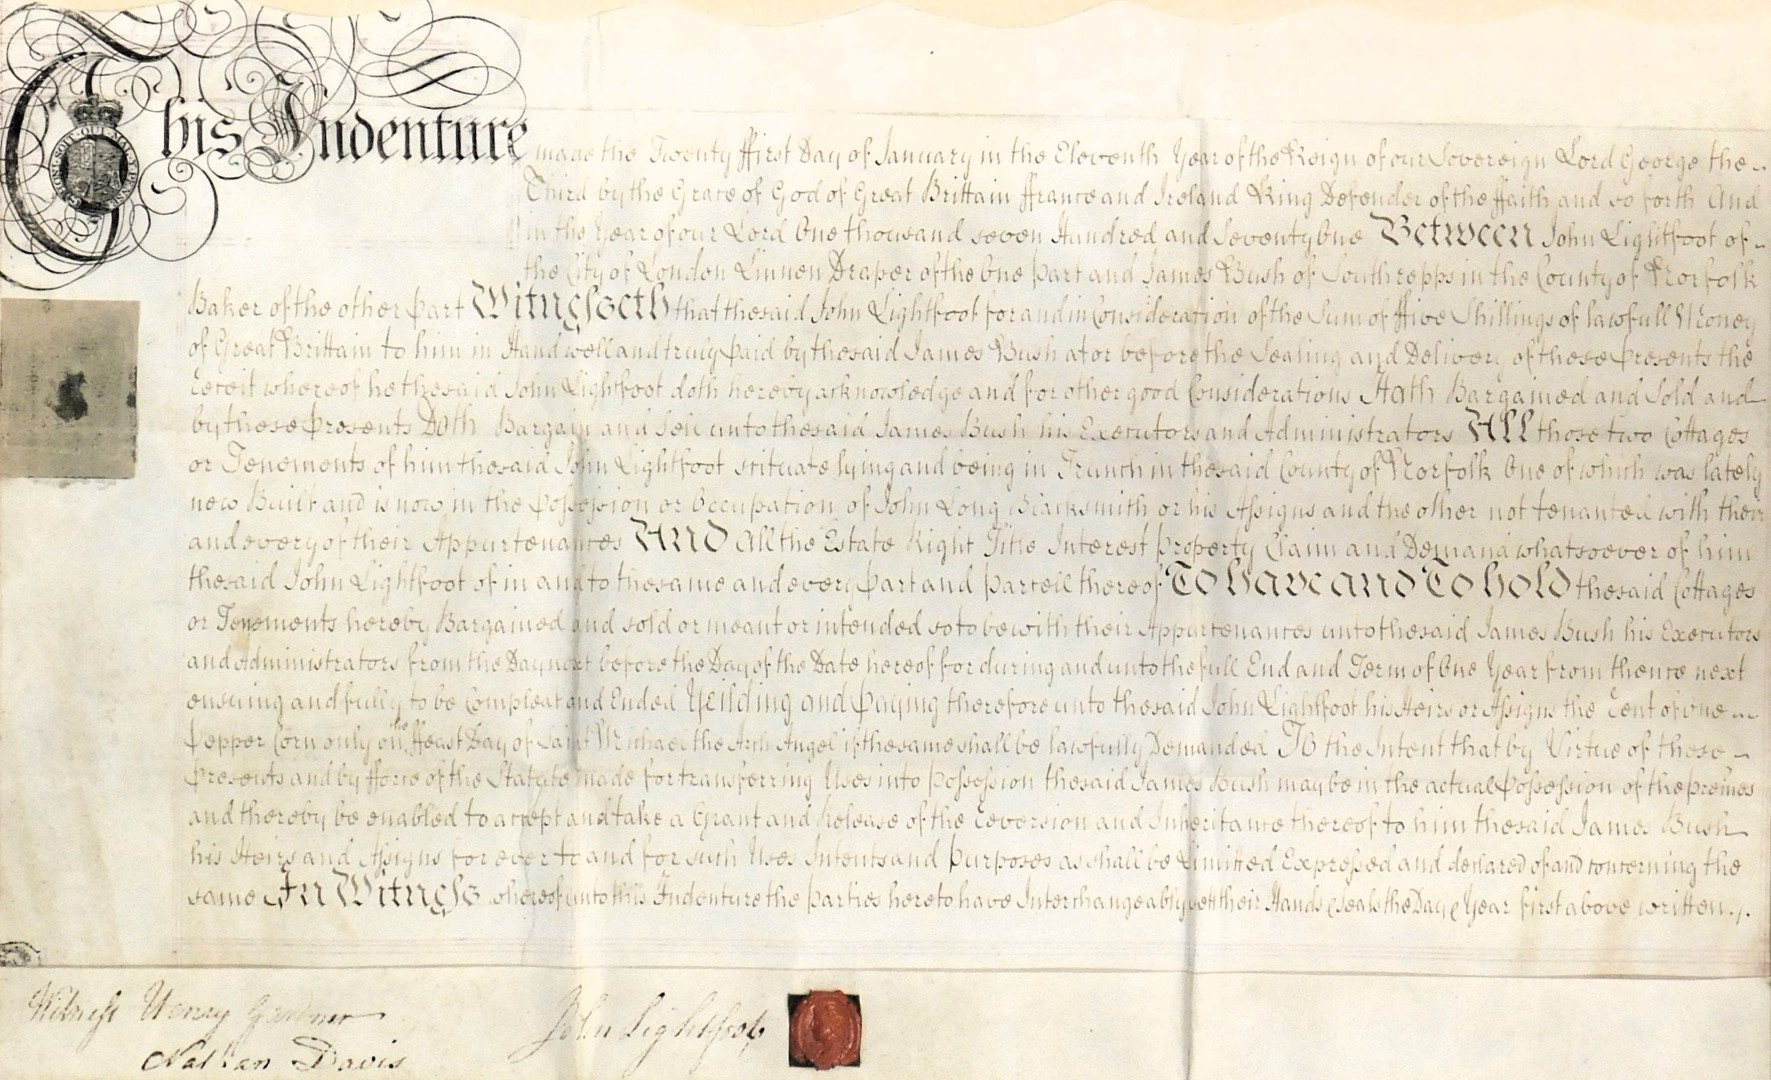 This Indenture made the Twenty ffirst Day of January in the Eleventh Year of the Reign of our Sovereign Lord George the
Third by the Grace of God of Great Brittain ffrance and Ireland King Defender of the ffaith and so forth And
in the Year of our Lord One thousand seven Hundred and Seventy One Between John Lightfoot of
the City of London Linnen Draper of the One part and James Bush of Southrepps in the County of Norfolk
Baker of the other Part Witnesseth that the said John Lightfoot for and in Consideration of the Sum of ffive Shillings of lawfull Money
of Great Brittain to him in Hand well and truly Paid by the said James Bush at or before the Sealing and Delivery of these Presents the
Receit whereof he the said John Lightfoot doth hereby acknowledge and for other good Considerations Hath Bargained and Sold and
by these Presents Doth Bargain and Sell unto the said James Bush his Executors and Administrators All those two Cottages
or Tenements of him the said John Lightfoot scituate lying and being in Trunch in the said County of Norfolk One of which was lately
new Built and is now in the Possession or Occupation of John Long Blacksmith or his Assigns and the other not tenanted with their
and every of their Appurtenances And All the Estate Right Title Interest property Claim and Demand whatsoever of him
the said John Lightfoot of in and to the same and every Part and parcell thereof To have and To hold the said Cottages
or Tenements hereby Bargained and sold or meant or intended so to be with their Appurtenances unto the said James Bush his Executors
and Administrators from the Day next before the Day of the Date hereof for during and unto the full End and Term of One Year from thence next
ensuing and fully to be Compleat and Ended Yeilding and Paying therefore unto the said John Lightfoot his Heirs or Assigns the Rent of one
Pepper Corn only on the ffeast Day of Saint Michael the Arch Angel if the same shall be lawfully Demanded To the Intent that by Virtue of these
Presents and by fforce of the Statute made for transferring Uses into possession the said James Bush may be in the actual Possession of the premes
and thereby be enabled to accept and take a Grant and Release of the Reversion and Inheritance thereof to him the said James Bush
his Heirs and Assigns for ever to and for such Uses Intents and purposes as shall be Limitted Expressed and declared of and concerning the
same In Witness whereof unto this Indenture the parties hereto have Interchangeably sett their Hands & seals the Day & Year first above written.
Witness Henry Gardner
John Lightfoot
Nathan Davis